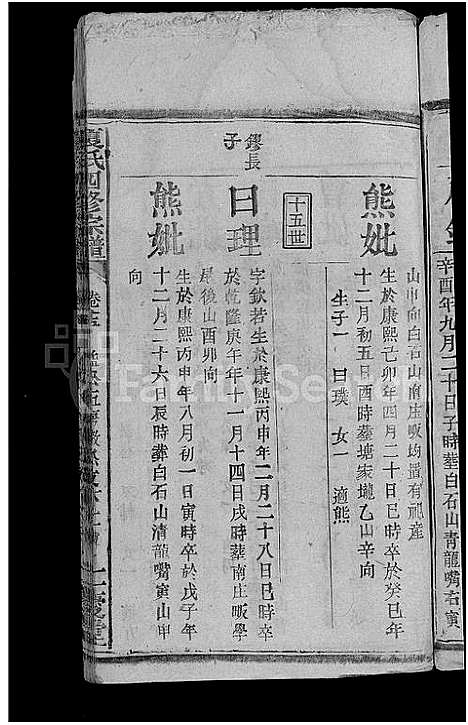 辛酉年九月二十日子時葬白石山青龍嘴右寅
山申向白石山南庄畈均還有祀產
熊妣
生於康熙己卯年四月二十日巳時卒於癸巳年
十二月初五日酉時葬塘家壠乙山辛向
生子一 日璞 女一 適熊
十五世
鏐長子
日理
字欽若生於康熙丙申年二月二十八日巳時卒
於乾隆庚午年十一月十四日戌時葬南庄畈學
屋後山酉卯向
熊妣
生於康熙丙申年八月初一日寅時卒於戊子年
十二月二十六日辰時葬白石山清龍嘴寅山申
向
夏氏四修宗譜
FamilySearch